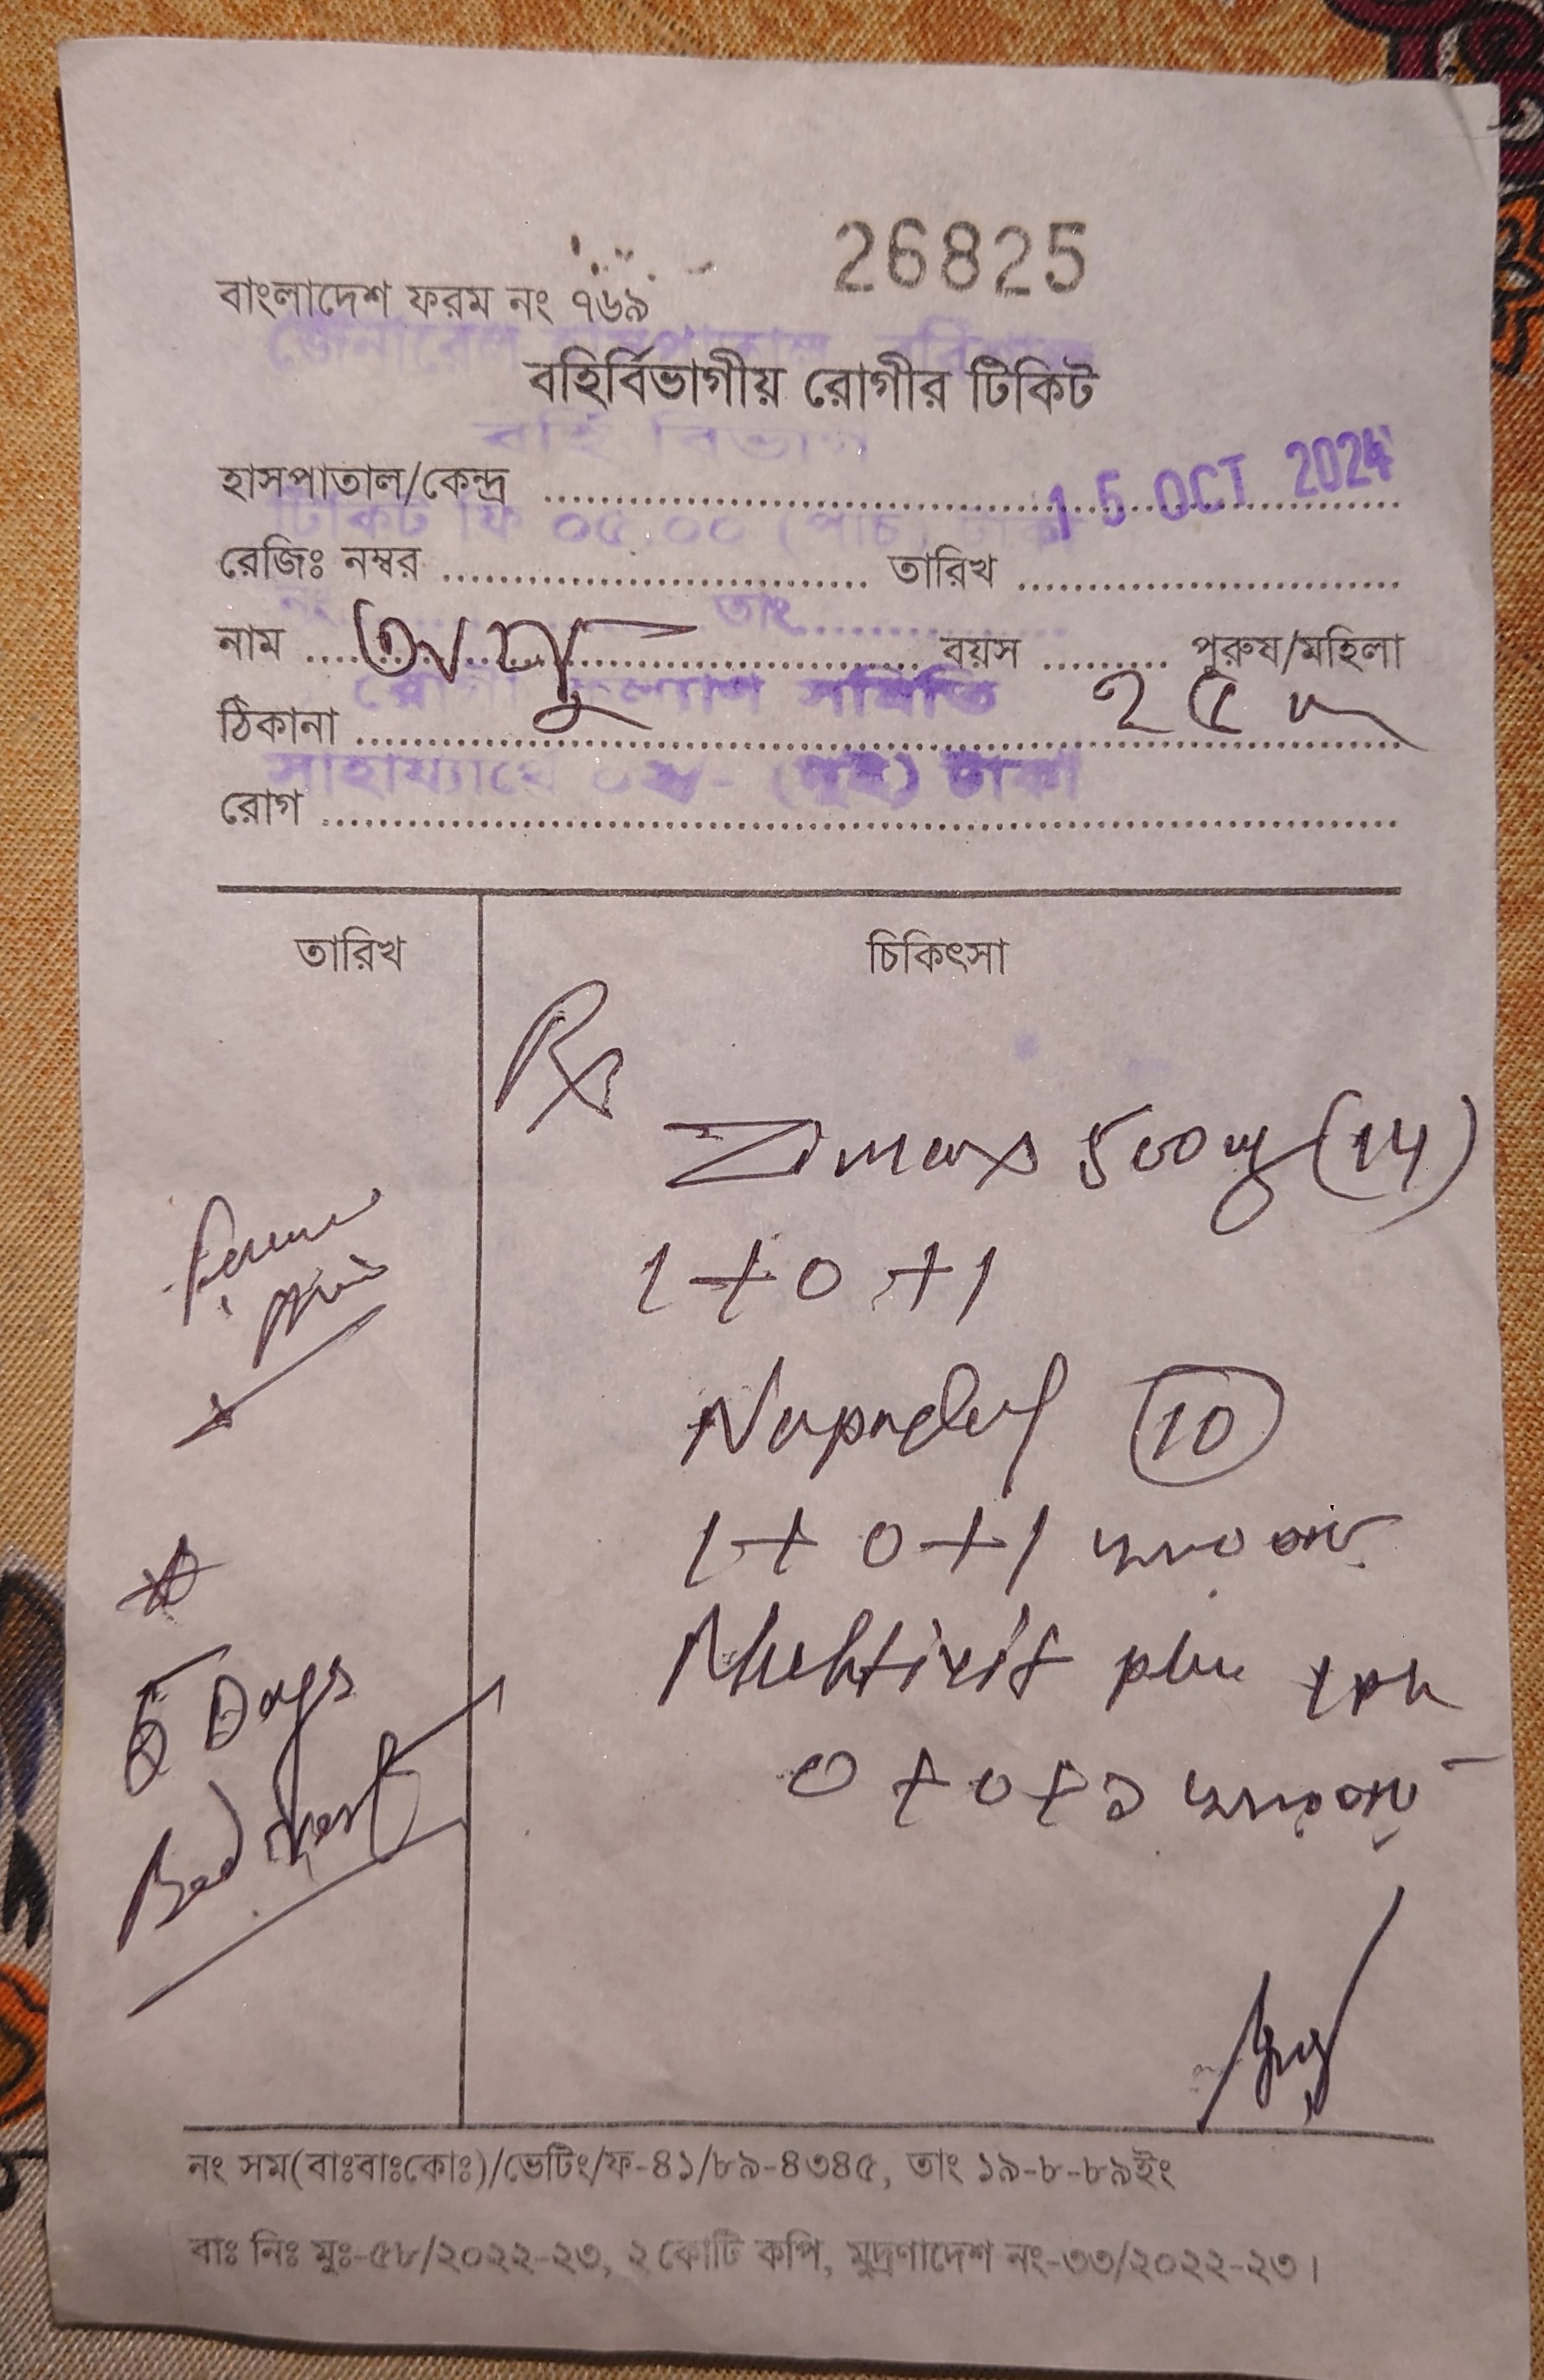 26825
বাংলাদেশ ফরম নং ৭৬৯
জেনারেল হাসপাতাল,
বহির্বিভাগীয় রোগীর টিকিট
বহিঃ বিভাগ
হাসপাতাল/কেন্দ্র
15 OCT 2024
টিকিট ফি ০৫.০০ (পাঁচ) টাকা
রেজিঃ নম্বর তারিখ
নং তাং
নাম বয়স পুরুষ/মহিলা
রোগী কল্যাণ সমিতি
ঠিকানা ২৫
সাহায্যার্থে ০২/- (দুই) টাকা
রোগ
তারিখ চিকিৎসা
Rx
Zimax 500mg (14)
1+0+1
Napadol 10
1+0+1
Multivit plus
0+0+১
5 Days
Bed Rest
নং সম(বাঃবাঃকোঃ)/ভেটিং/ফ-৪১/৮৯-৪৩৪৫, তাং ১৯-৮-৮৯ইং
বাঃ নিঃ মুঃ-৫৮/২০২২-২৩, ২ কোটি কপি, মুদ্রণাদেশ নং-৩৩/২০২২-২৩।